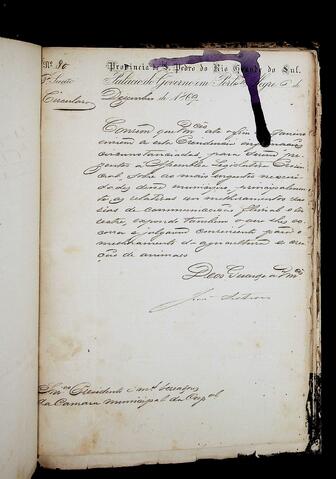 Nº 80
Provincia de S. Pedro do Rio Grande do Sul.
Secção Palacio do Governo em Porto Alegre de
Circular Dezembro de 1869
Convem que Vmces até o fim de Janeiro
enviem a esta Presidencia informações
circumstanciadas, para serem pre-
zentes a Assembléa Legislativa Provin-
cial, sobre as mais urgentes necessi-
dades desse municipio, principalmen-
te as relativas ao melhoramento das
vias de communicação fluvial e ter-
restre, expondo tambem o que lhes oc-
corra e julgarem conveniente para o
melhoramento da agricultura e crea-
ção de animaes
Deos Guarde a Vmces
Snres Presidente e mais Vereadores
da Camara Municipal da Capal